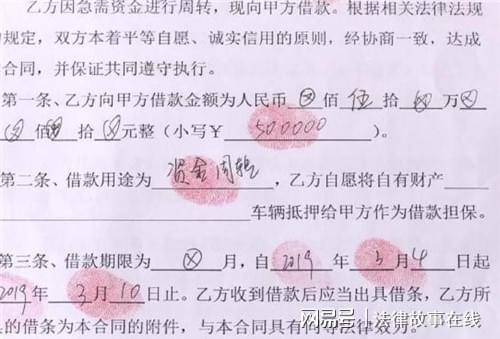 乙方因急需资金进行周转，现向甲方借款。根据相关法律法规
规定，双方本着平等自愿、诚实信用的原则，经协商一致，达成
合同，并保证共同遵守执行。
第一条、乙方向甲方借款金额为人民币 ⊗ 佰 伍 拾 ⊗ 万 ⊗
佰 拾 ⊗ 元整（小写￥ 500000 ）。
第二条、借款用途为 资金周转 ，乙方自愿将自有财产
车辆抵押给甲方作为借款担保。
第三条、借款期限为 ⊗ 月，自 2019 年 3 月 4 日起
2019年 3月 10日止。乙方收到借款后应当出具借条，乙方所
具的借条为本合同的附件，与本合同具有同等法律效力。
网易号 | 法律故事在线